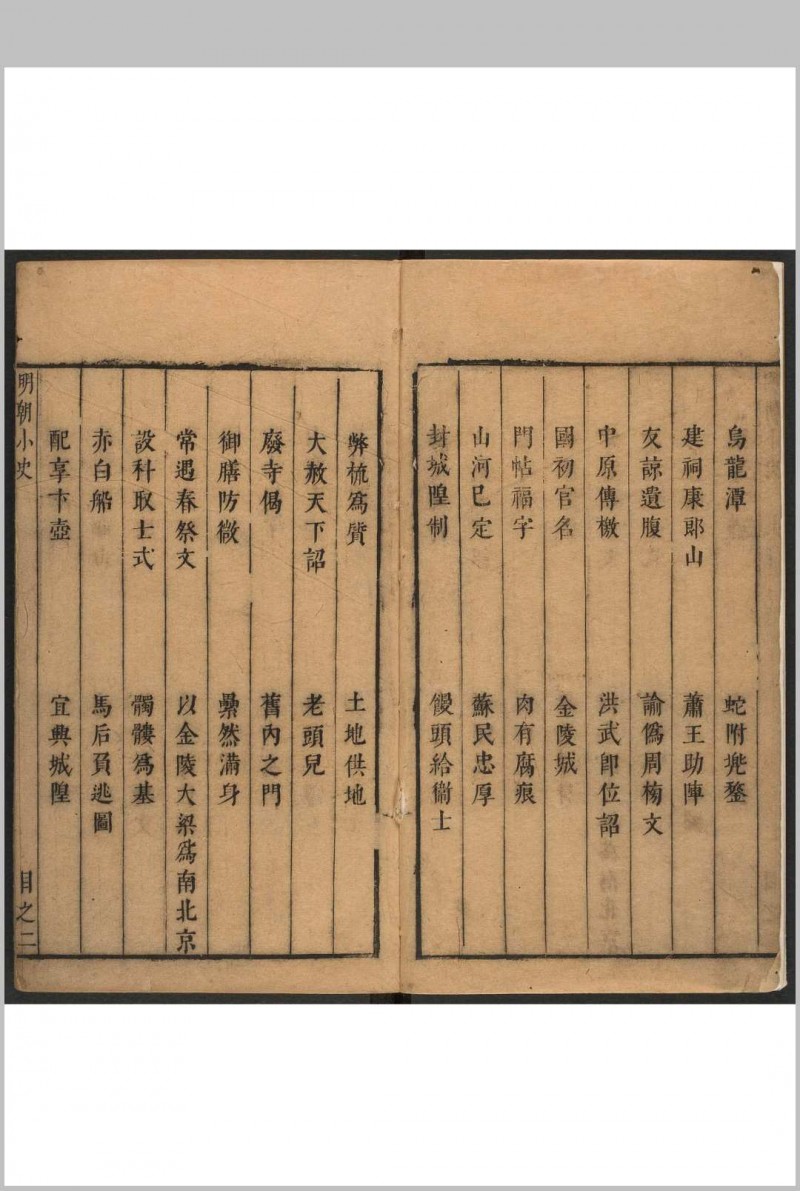 烏龍潭　蛇附兠鍪
建祠康郎山　蕭王助陣
友諒遺腹　諭僞周榜文
中原傳檄　洪武卽位詔
國初官名　金陵城
門帖福字　肉有腐痕
山河已定　蘇民忠厚
封城隍制　饅頭給衞士
弊梳爲質　土地供地
大赦天下詔　老頭兒
廢寺偈　舊內之門
御膳防微　纍然滿身
常遇春祭文　以金陵大梁爲南北京
設科取士式　髑髏爲基
赤白船　馬后負逃圖
配享卞壺　宜興城隍
明朝小史　目之二